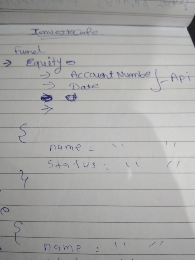 Investinfo
fund
→ Equity
→ Account Number } - Api
→ Date
→
→
{
name = " "
Status = " "
}
{
name = " "